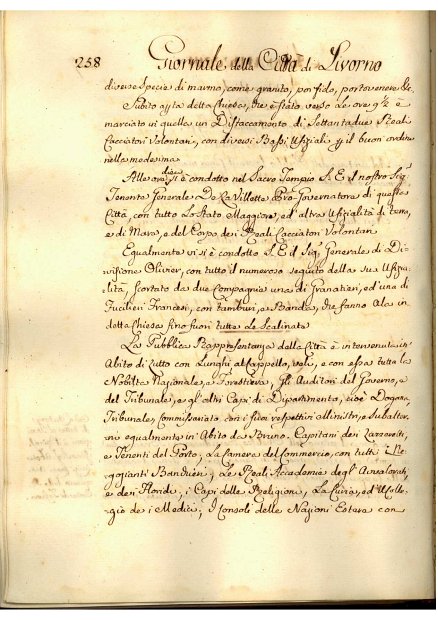 258 Giornale della Città di Livorno
diverse specie di marmo, come granito, porfido, portovenere &c.
Subito aperta della Chiesa, che è stato verso le ore 9½ è
marciato in quella un Distaccamento di Settantadue Reali
Cacciatori Volontari, con diversi Bassi Ufiziali p il buon ordine
nella medesima.
Alle ore dieci si è condotto nel Sacro Tempio S. E. il nostro Sig
Tenente Generale De La Villette Pro-Governatore di questa
Città, con tutto lo Stato Maggiore, ed altra Ufizialità di terra,
e di Mare, e del Corpo dei Reali Cacciatori Volontari
Equalmente vi si è condotto S. E. il Sig. Generale di Di=
visione Olivier, con tutto il numeroso seguito della sua Ufizia
lità, scortato da due Compagnie una di Granatieri, ed una di
Fucilieri Francesi, con tamburi, e Banda, che fanno Ala in
detta Chiesa fino fuori tutte le Scalinate
La Pubblica Rappresentanza della Città è intervenuta in
Abito di lutto con Lunghi al Cappello, veli, e con essa tutta la
Nobiltà Nazionale, e Forestiera, Gli Auditori del Governo, e
del Tribunale, e gl'altri Capi di Dipartimento, cioè Dogana,
Tribunale, Commissariato con i suoi respettivi Ministri, e Subalter
ni equalmente in Abito da Bruno. Capitani dei Lazzeretti,
e Tenenti del Porto, La Camera del Commercio, con tutti i Ne
gozianti Bandieri; Le Reali Accademie degl'Avvalorati,
e dei Floridi, i Capi delle Religioni, La Curia, ed il Colle=
gio de i Medici; I Consoli delle Nazioni Estere con